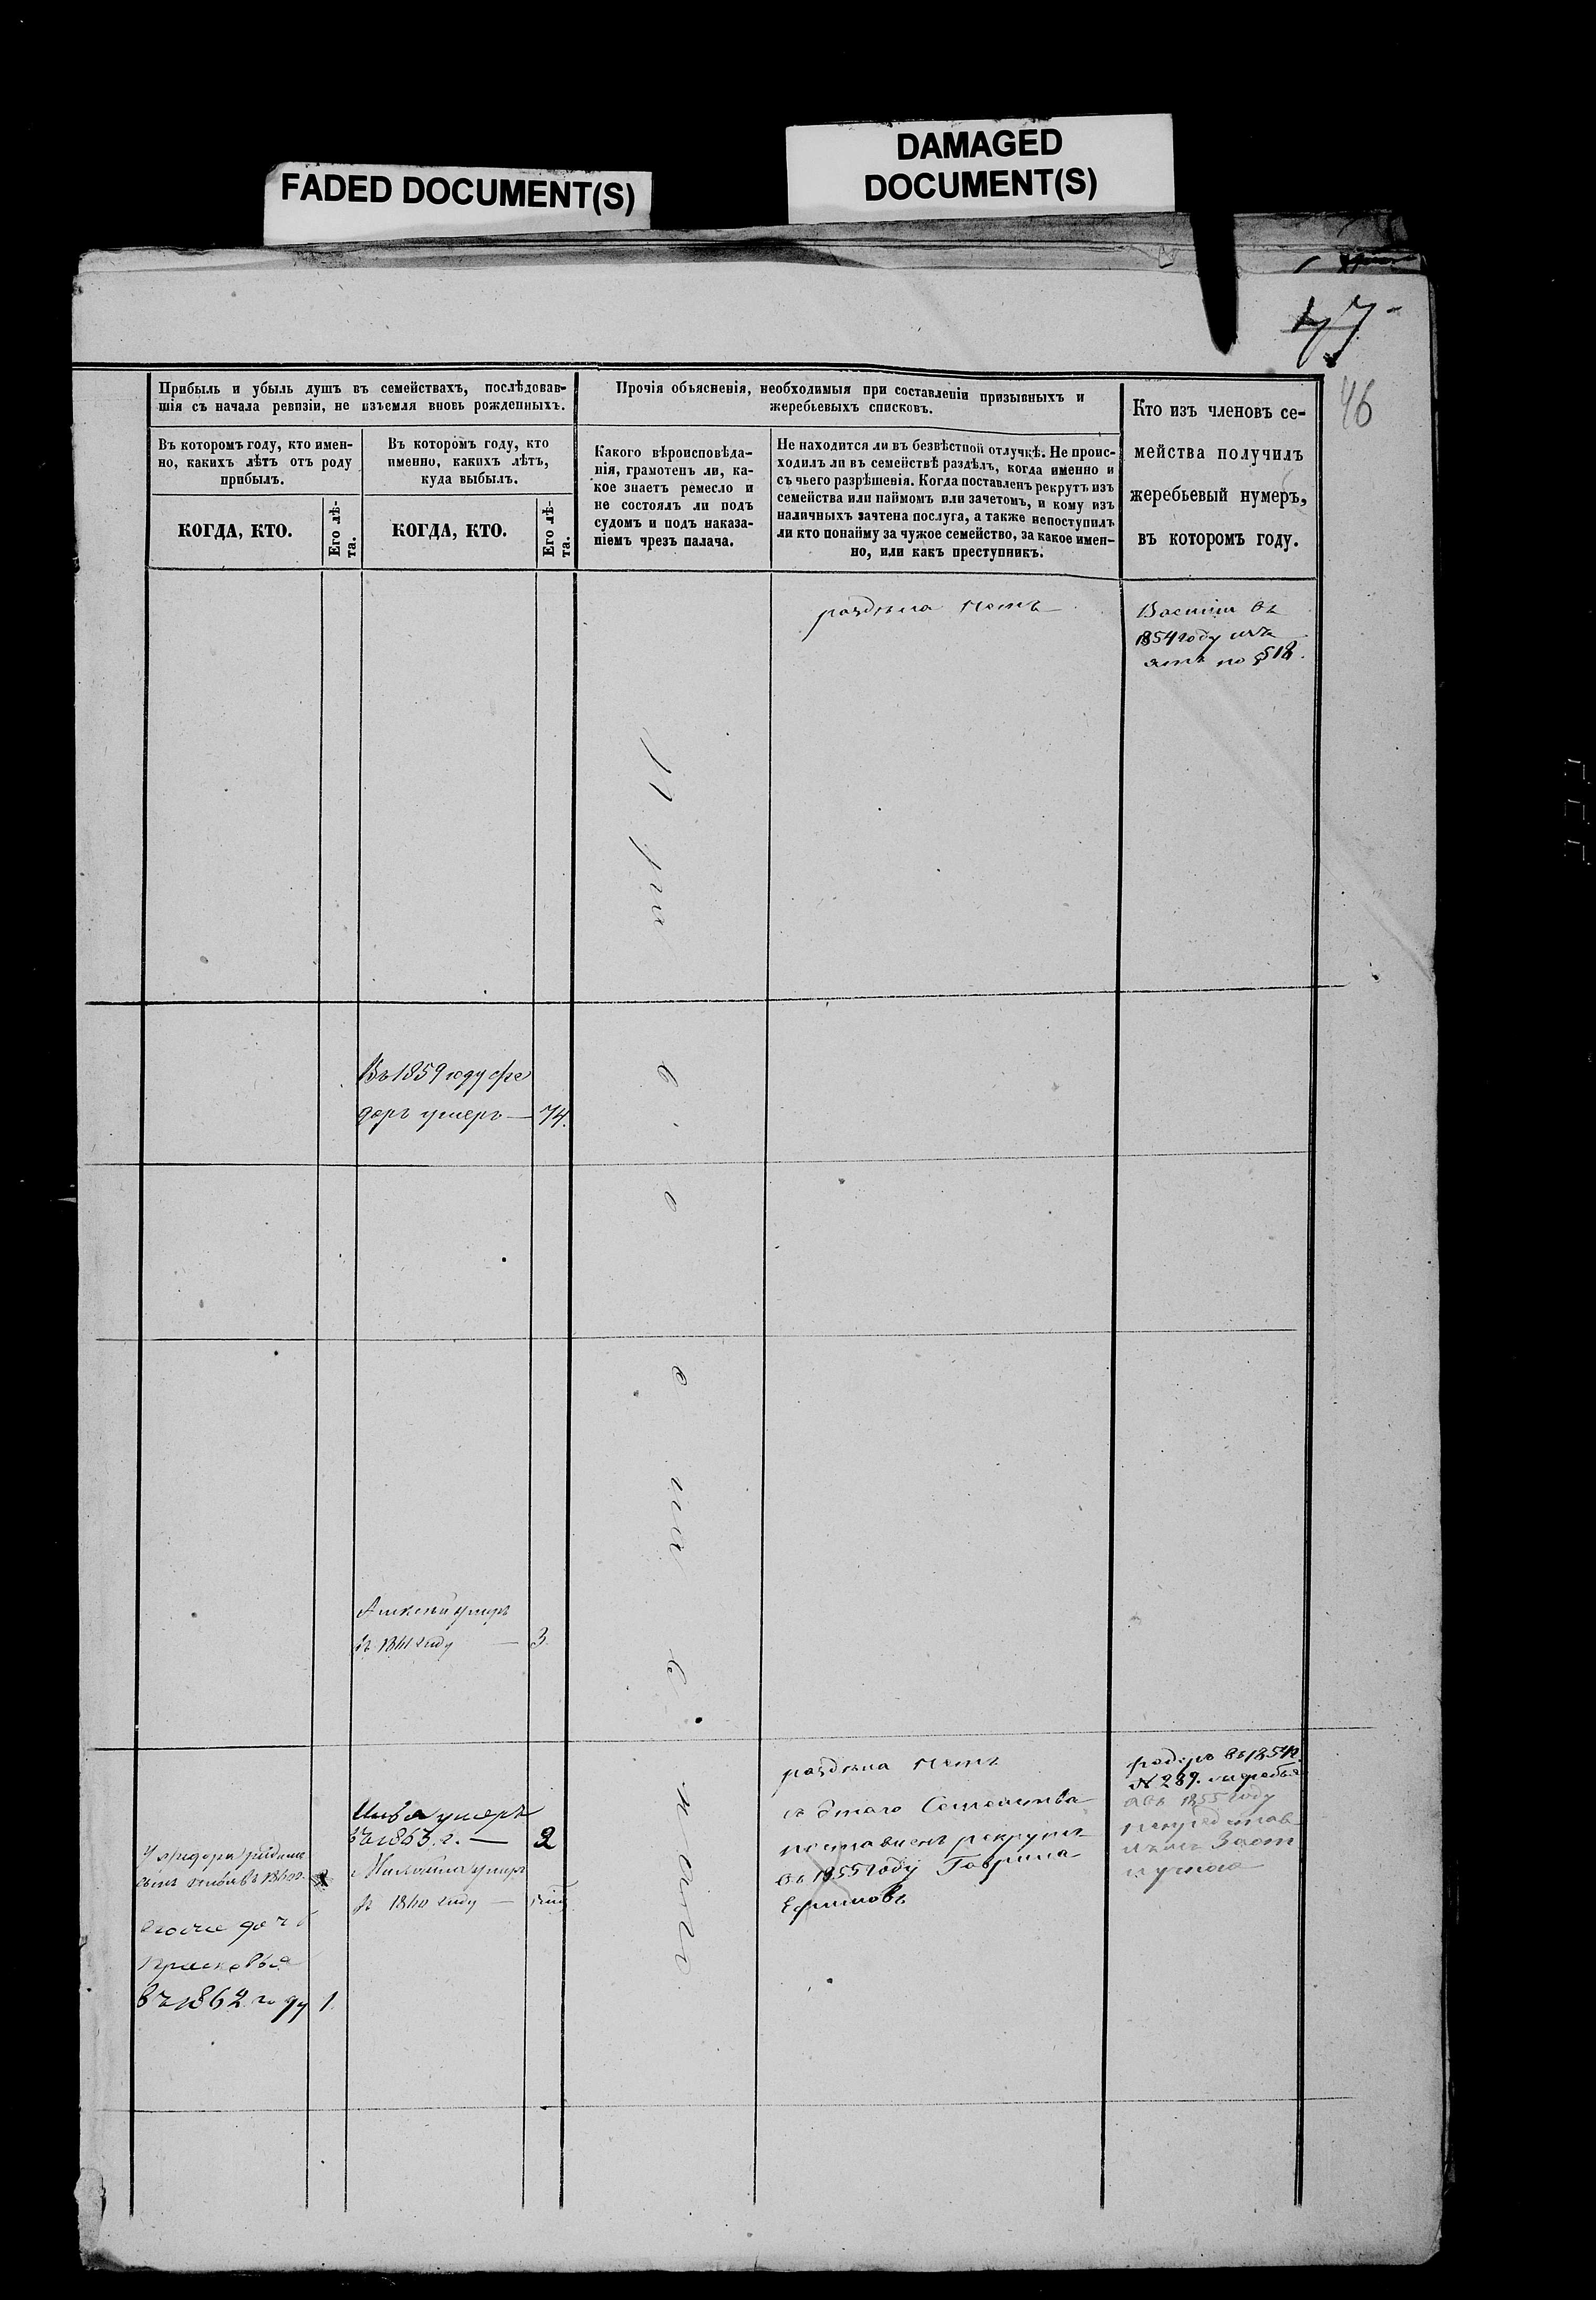 FADED DOCUMENT(S)
DAMAGED
DOCUMENT(S)
47
46
Прибыль и убыль душъ въ семействахъ, послѣдовав-
шія съ начала ревизіи, не изъемля вновь рожденныхъ.
Въ которомъ году, кто имен-
но, какихъ лѣтъ отъ роду
прибылъ.
КОГДА, КТО.
Его лѣ-
та.
Въ которомъ году, кто
именно, какихъ лѣтъ,
куда выбылъ.
КОГДА, КТО.
Его лѣ-
та.
Прочія объясненія, необходимыя при составленіи призывныхъ и
жеребьевыхъ списковъ.
Какого вѣроисповѣда-
нія, грамотенъ ли, ка-
кое знаетъ ремесло и
не состоялъ ли подъ
судомъ и подъ наказа-
ніемъ чрезъ палача.
Не находится ли въ безвѣстной отлучкѣ. Не проис-
ходилъ ли въ семействѣ раздѣлъ, когда именно и
съ чьего разрѣшенія. Когда поставленъ рекрутъ изъ
семейства или наймомъ или зачетомъ, и кому изъ
наличныхъ зачтена послуга, а также непоступилъ
ли кто понайму за чужое семейство, за какое имен-
но, или какъ преступникъ.
Кто изъ членовъ се-
мейства получилъ
жеребьевый нумеръ,
въ которомъ году.
раздѣла нетъ
въ
1854 году изъ
по § 18.
Въ 1859 году Фе
доръ умеръ — 74.
умеръ
въ 1861 году — 3.
раздѣла нетъ
съ этаго Семейства
поставленъ рекрутъ
въ 1855 году Гаврила
Ефимовъ
въ 1854
№ 289.
въ 1855 году
умеръ
въ 1863. г. — 2
умеръ
въ 1860 году —
У Федора
сынъ въ 1860
дочь
Прасковья
въ 1862 году 1.